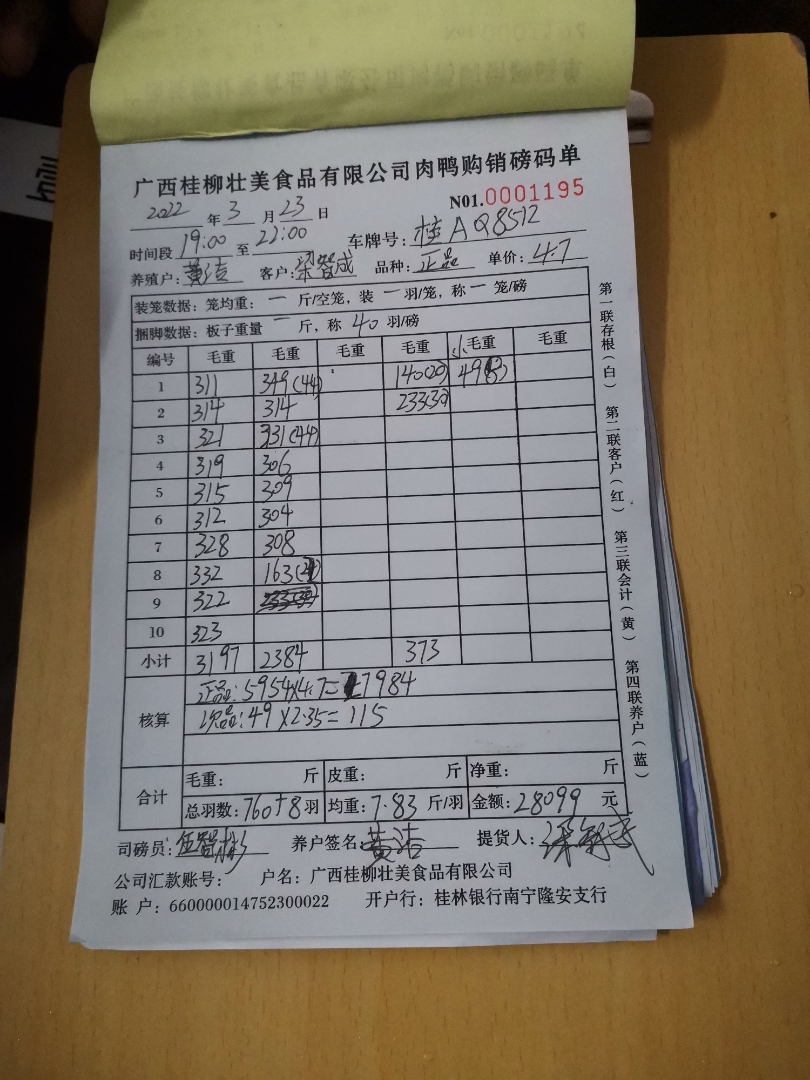 广西桂柳壮美食品有限公司肉鸭购销磅码单
2022 年 3 月 23 日 N01.0001195
时间段 19:00 至 22:00 车牌号: 桂A Q8512
养殖户: 黄洁 客户: 梁智成 品种: 正品 单价: 4.7
装笼数据: 笼均重: 一 斤/空笼, 装 一 羽/笼, 称 一 笼/磅
捆脚数据: 板子重量 一 斤, 称 40 羽/磅
编号 毛重 毛重 毛重 毛重 小毛重 毛重
1 311 349(44) 140(20) 49(8)
2 314 314 233(30)
3 321 331(44)
4 319 306
5 315 309
6 312 304
7 328 308
8 332 163(21)
9 322
10 323
小计 3197 2384 373
核算
正品: 5954×4.7=27984
次品: 49×2.35=115
合计
毛重: 斤 皮重: 斤 净重: 斤
总羽数: 760+8 羽 均重: 7.83 斤/羽 金额: 28099 元
司磅员: 养户签名: 黄洁 提货人:
公司汇款账号: 户名: 广西桂柳壮美食品有限公司
账 户: 660000014752300022 开户行: 桂林银行南宁隆安支行
第一联存根(白) 第二联客户(红) 第三联会计(黄) 第四联养户(蓝)